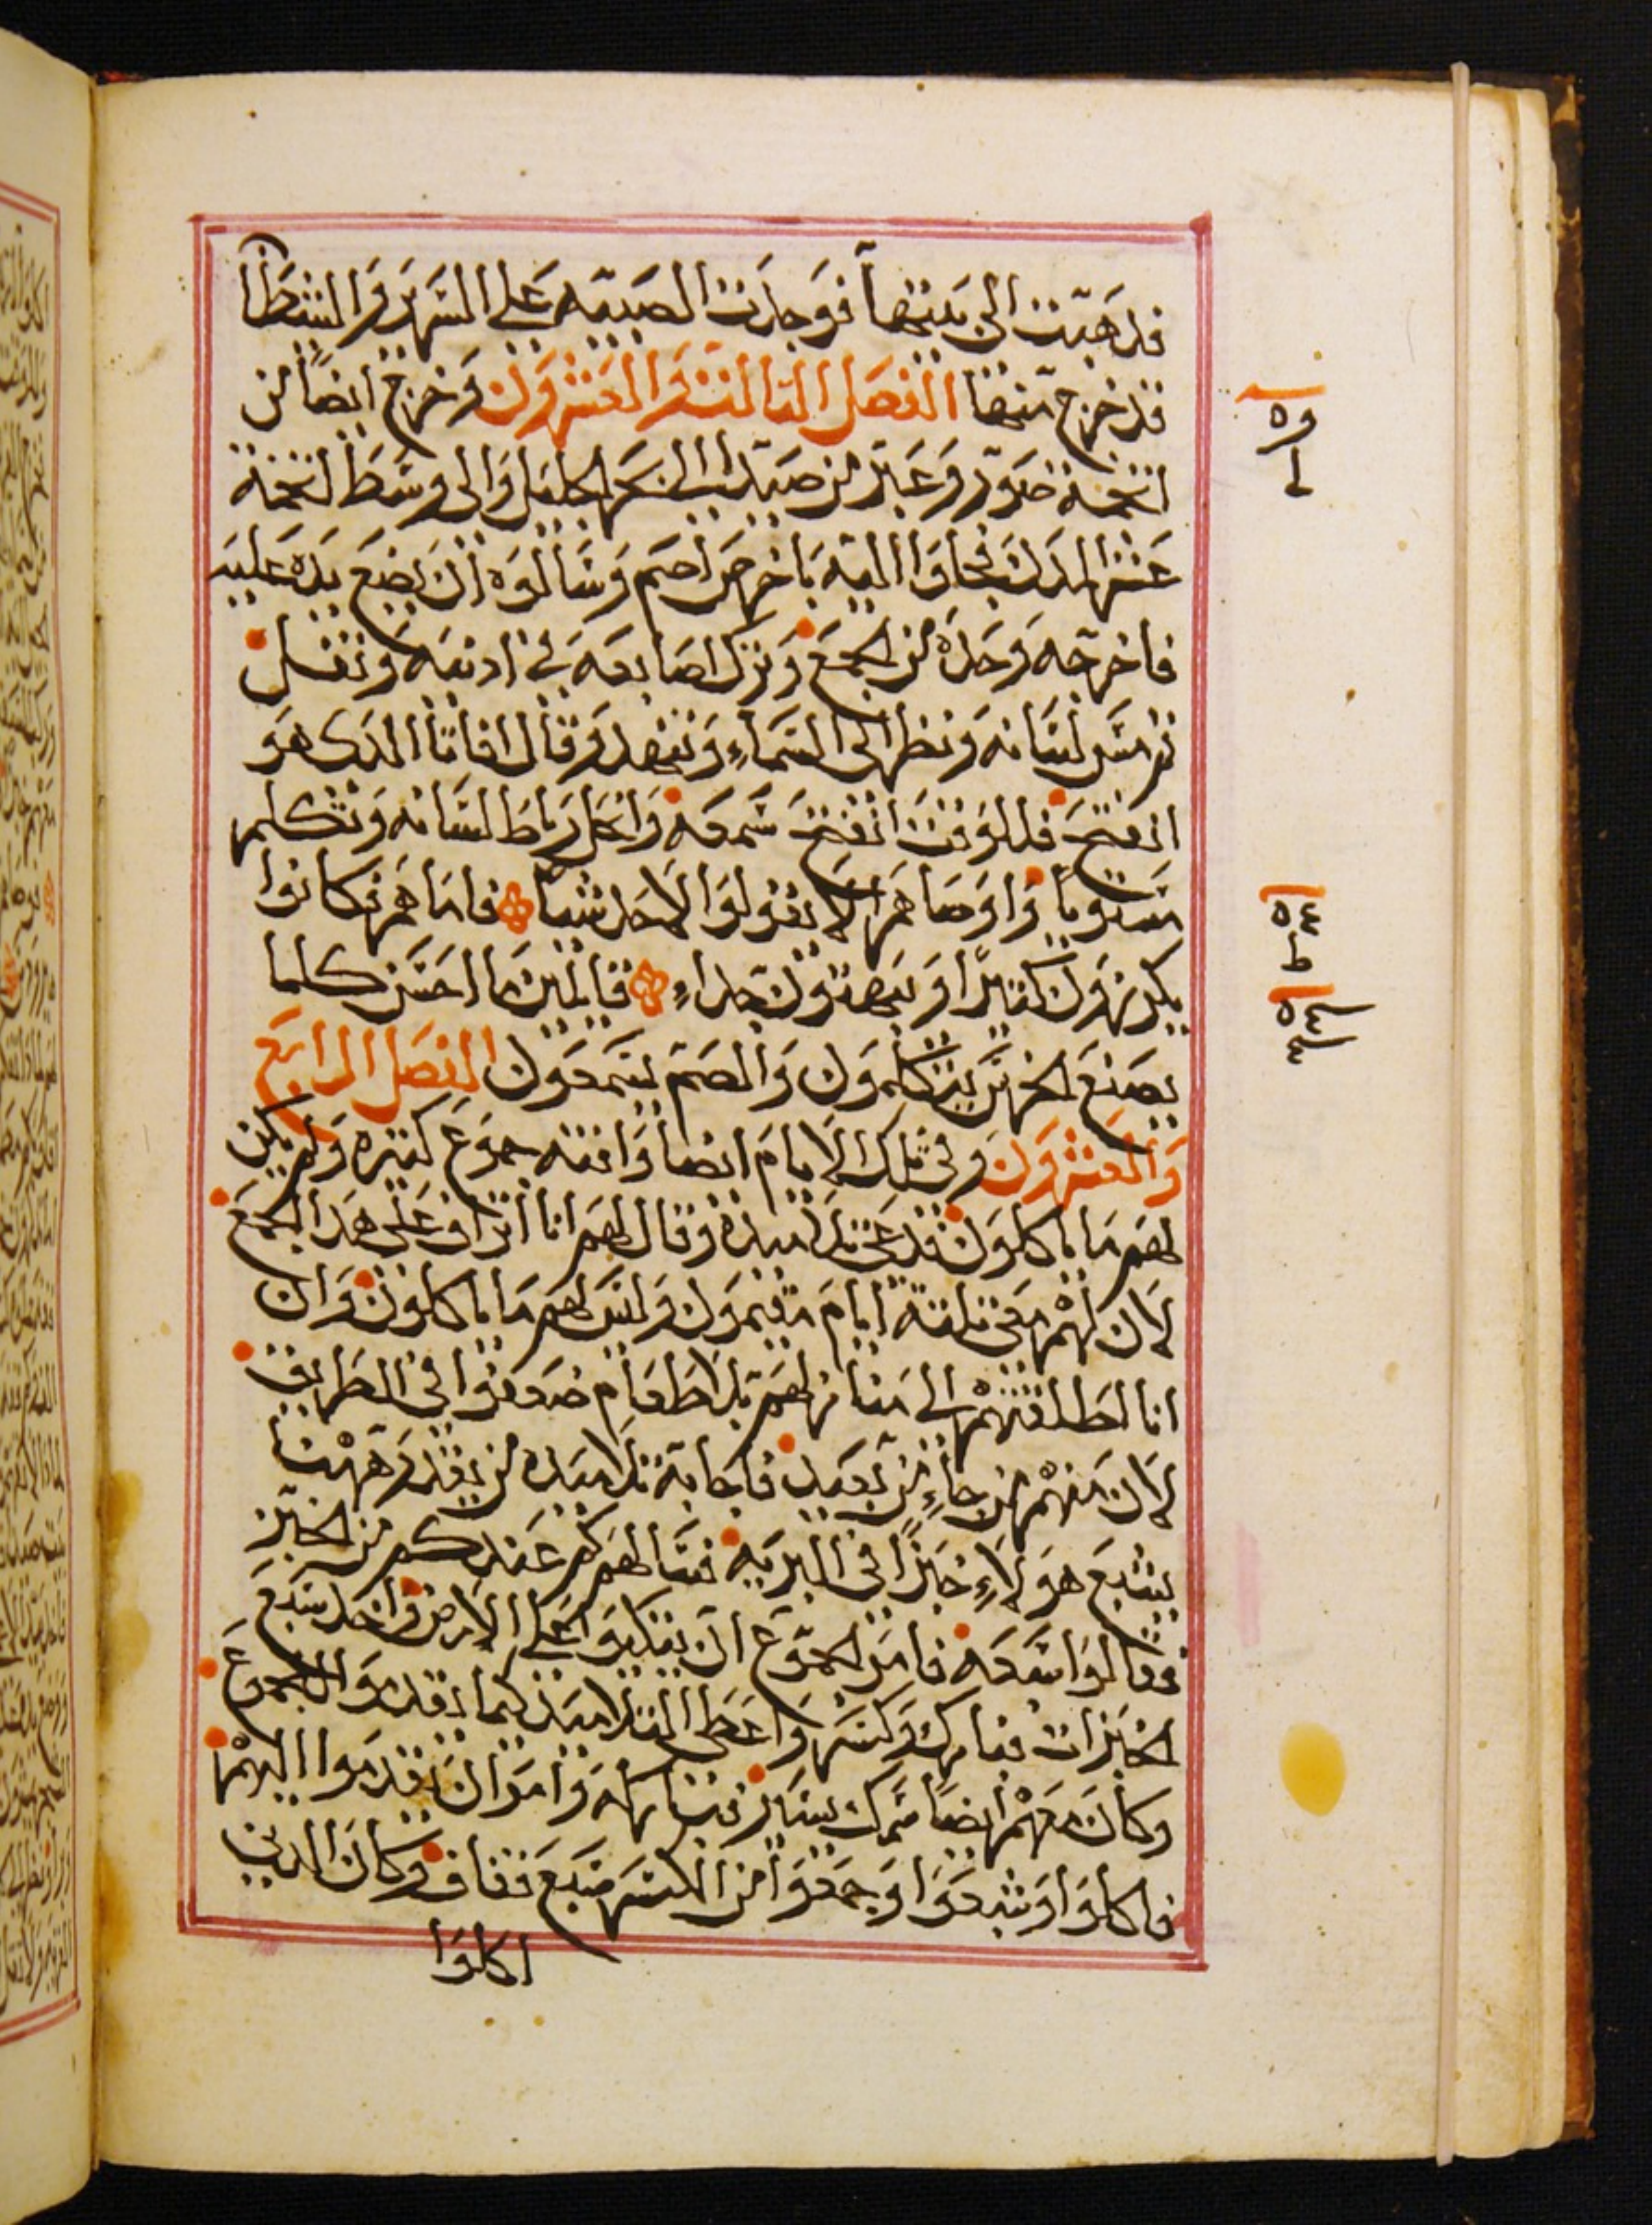 فذهبت الى بيتها فوجدت الصبيه على السرير والشيطان
قد خرج منها الفصل الثالث والعشرون وخرج ايضا من
تخم صور وعبر من صيدا الى بحر الجليل والى وسط تخم
عشر المدن فجاوا اليه باخرس اصم وسالوه ان يضع يده عليه
فاخرجه وحده من الجمع وترك اصابعه في ادنيه وتفل
ثم مس لسانه ونظر الى السماء وتنهد وقال افاتا الدى هو
انفتح فللوقت انفتح سمعه وانحل رباط لسانه وتكلم
مستويا واوصاهم الا يقولوا لاحد شيا فاما هم فكانوا
يكرزون كثيرا ويبهتون جداء قايلين ما احسن كلما
يصنع الخرس يتكلمون والصم يسمعون الفصل الرابع
والعشرون وفي تلك الايام ايضا وافته جموع كثيره ولم يكن
لهم ما ياكلون فدعى تلاميده وقال لهم انا اتراف على هدا الجمع
لان لهم معى ثلثة ايام مقيمون وليس لهم ما ياكلون وان
انا اطلقتهم الى منازلهم بلا طعام ضعفوا في الطريق
لان منهم من جاء من بعيد فاجابه تلاميده من يقدر هاهنا
يشبع هولاء خبزا في البريه فسالهم كم عندكم من الخبز
فقالوا سبعه فامر الجموع ان يتكوا على الارض واخد سبع
الخبزات فبارك وكسر واعطى التلاميد كما يقدموا للجموع
وكان معهم ايضا سمك يسير فباركه وامر ان يقدموا اليهم
فاكلوا وشبعوا وجمعوا من الكسر سبع قفاف وكان الدين
اكلوا